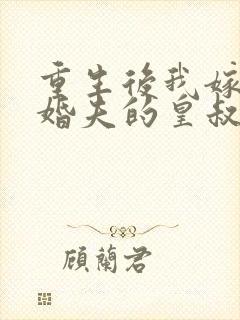 重生後我嫁
婚夫的皇叔
顧蘭君